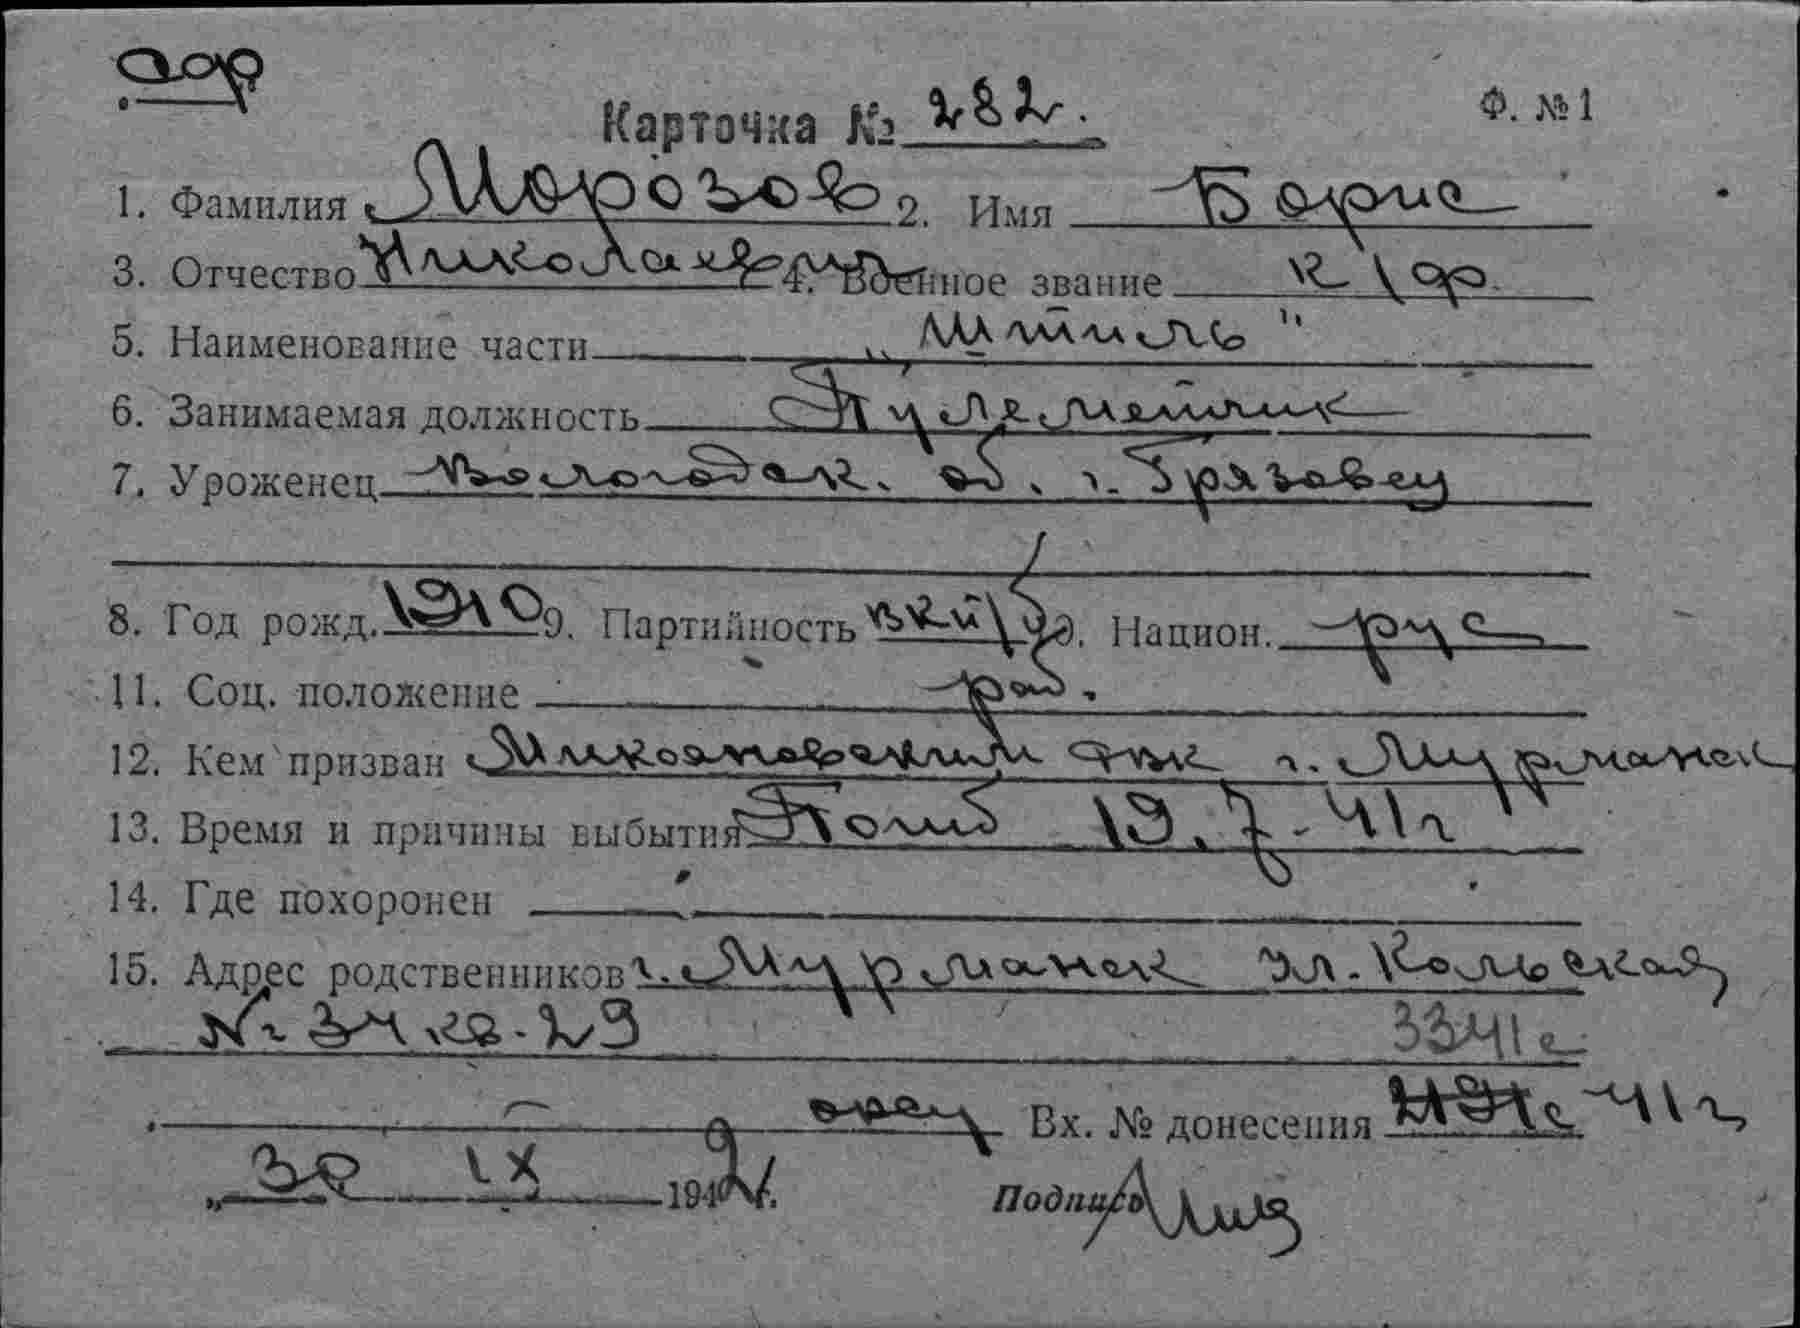 Карточка № 282. Ф. №1
1. Фамилия Морозов 2. Имя Борис
3. Отчество Николаевич 4. Военное звание к/ф
5. Наименование части „Штиль"
6. Занимаемая должность Пулеметчик
7. Уроженец Вологодск. об. г. Грязовец
8. Год рожд. 1910 9. Партийность ВКП/б 10. Национ. рус
11. Соц. положение раб.
12. Кем призван Микояновский РВК г. Мурманск
13. Время и причины выбытия Погиб 19.7-41г
14. Где похоронен
15. Адрес родственников г. Мурманск ул. Кольская
№ 24 кв-23 3341с
Вх. № донесения 41г
„30 IX 194 г.
Подпись